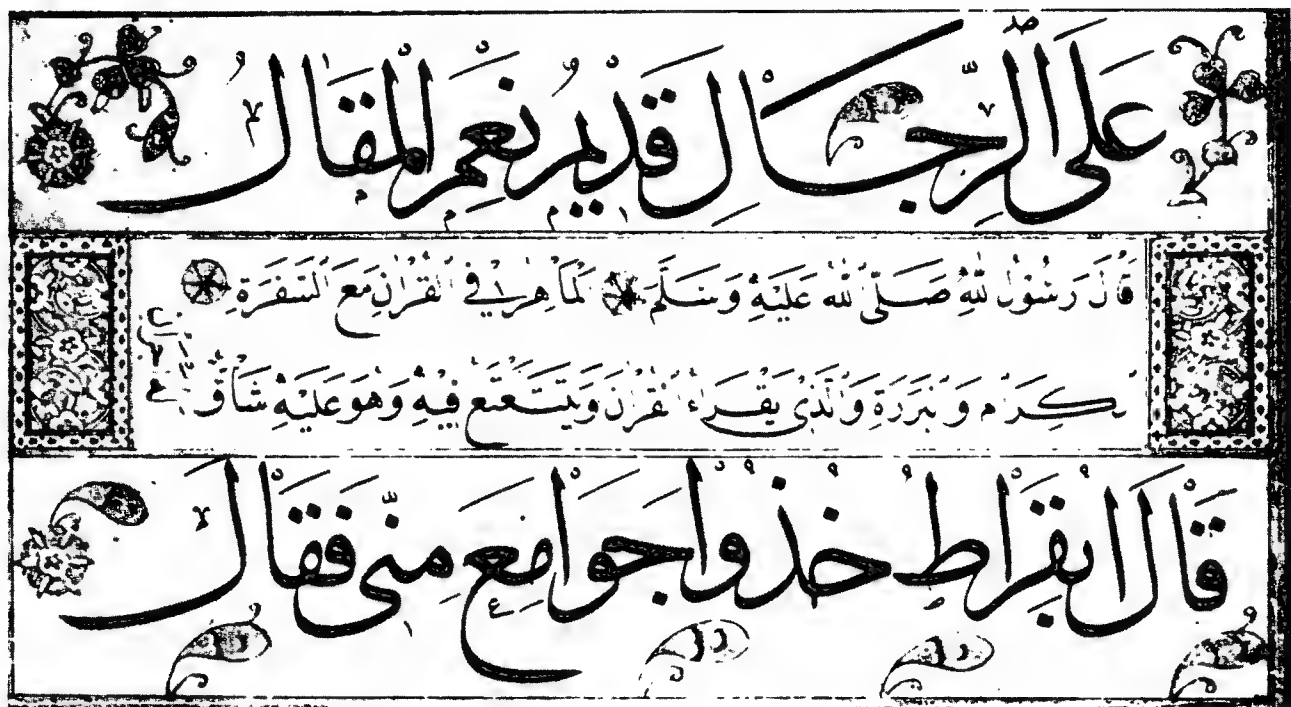 عَلَى الرِّجَالِ قَدِيْمٌ نَعَمْ الْمَقَالُ
قَالَ رَسُوْلُ اللهِ صَلَّى اللهُ عَلَيْهِ وَسَلَّمَ الْمَاهِرُ فِي الْقُرْاٰنِ مَعَ السَّفَرَةِ
الْكِرَامِ وَالْبَرَرَةِ وَالَّذِي يَقْرَاءُ الْقُرْاٰنَ وَيَتَتَعْتَعُ فِيْهِ وَهُوَ عَلَيْهِ شَاقٌّ
قَالَ ابُقِرَاطُ خُذُوْا جَوَامِعَ مِنِّى فَقَالَ